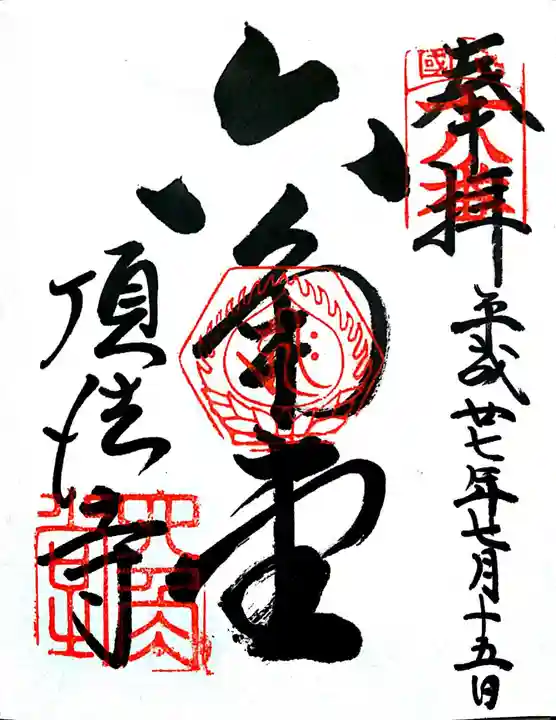 奉拝
平成廿七年七月十五日
六角堂
頂法寺
六角堂